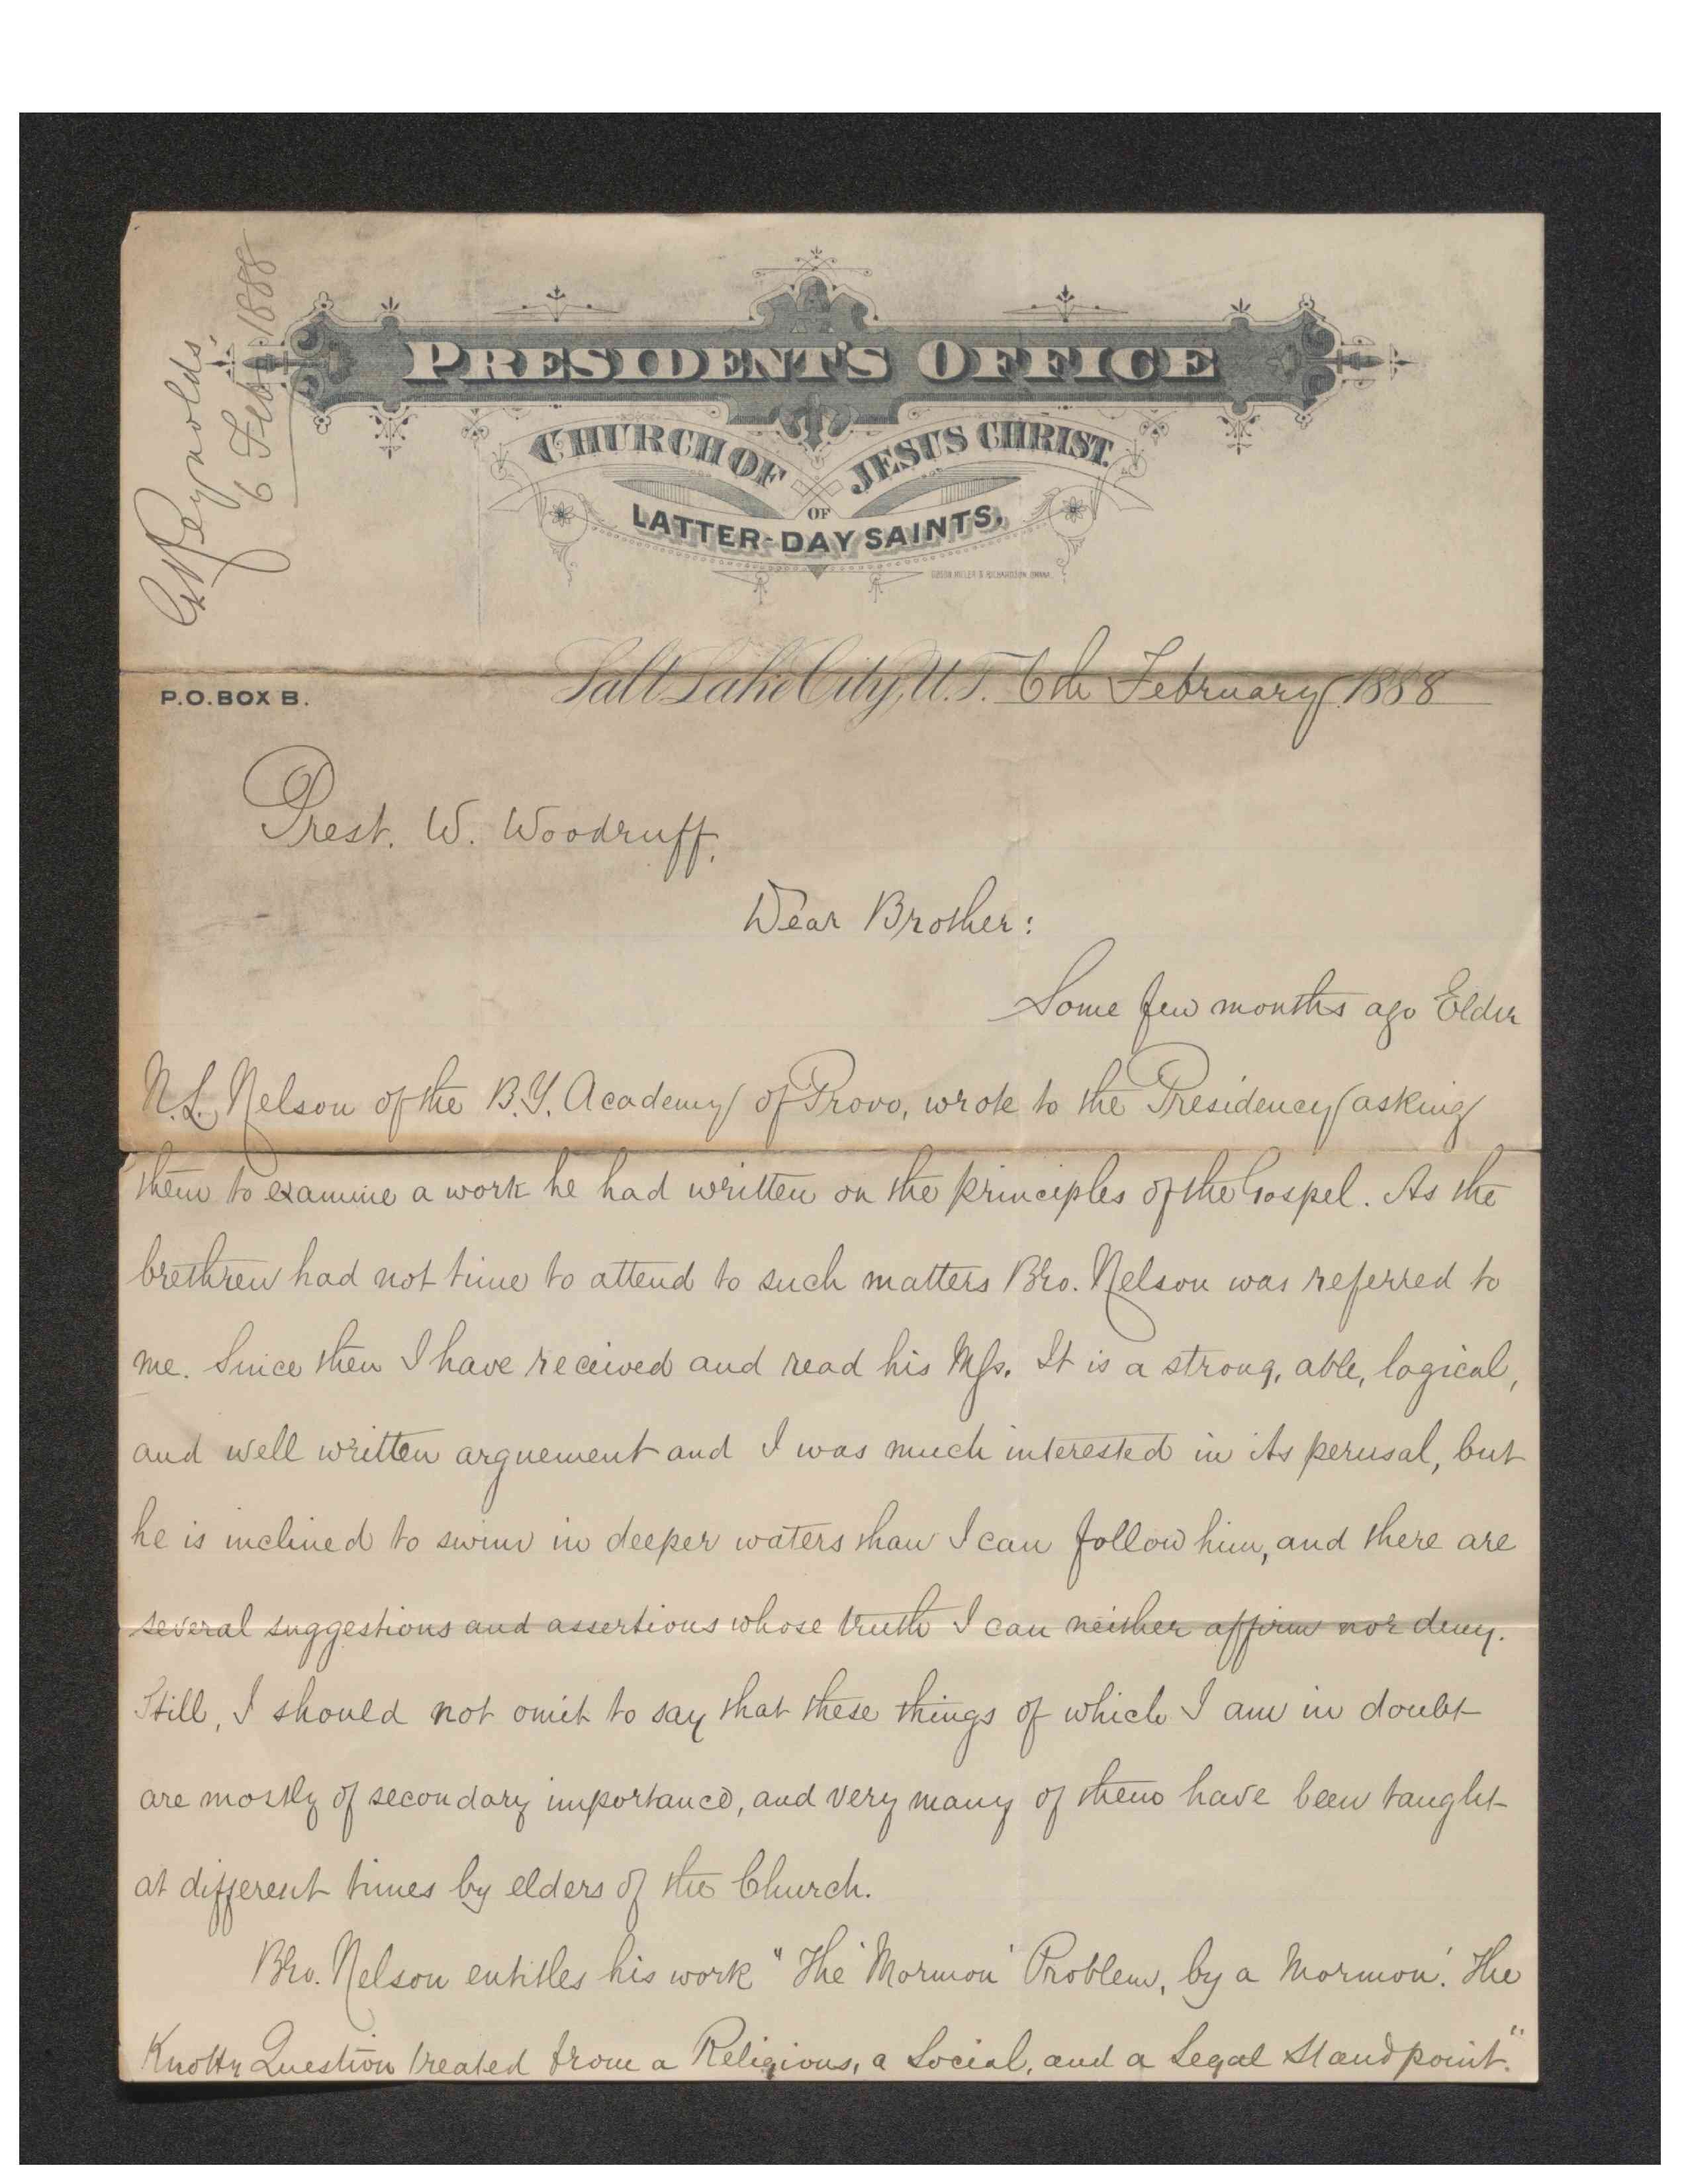 G Reynolds
6 Feb. 1888
PRESIDENT'S OFFICE
CHURCH OF JESUS CHRIST
OF
LATTER-DAY SAINTS.
P.O. BOX B.
Salt Lake City, U.T. 6th February 1888
Prest. W. Woodruff,
Dear Brother:
Some few months ago Elder
N.L. Nelson of the B.Y. Academy of Provo, wrote to the Presidency asking
them to examine a work he had written on the principles of the Gospel. As the
brethren had not time to attend to such matters Bro. Nelson was referred to
me. Since then I have received and read his Mss. It is a strong, able, logical,
and well written arguement and I was much interested in its perusal, but
he is inclined to swim in deeper waters than I can follow him, and there are
several suggestions and assertions whose truth I can neither affirm nor deny.
Still, I should not omit to say that these things of which I am in doubt
are mostly of secondary importance, and very many of them have been taught
at different times by elders of the Church.
Bro. Nelson entitles his work "The 'Mormon' Problem, by a 'Mormon'. The
Knotty Question treated from a Religious, a Social, and a Legal Standpoint."